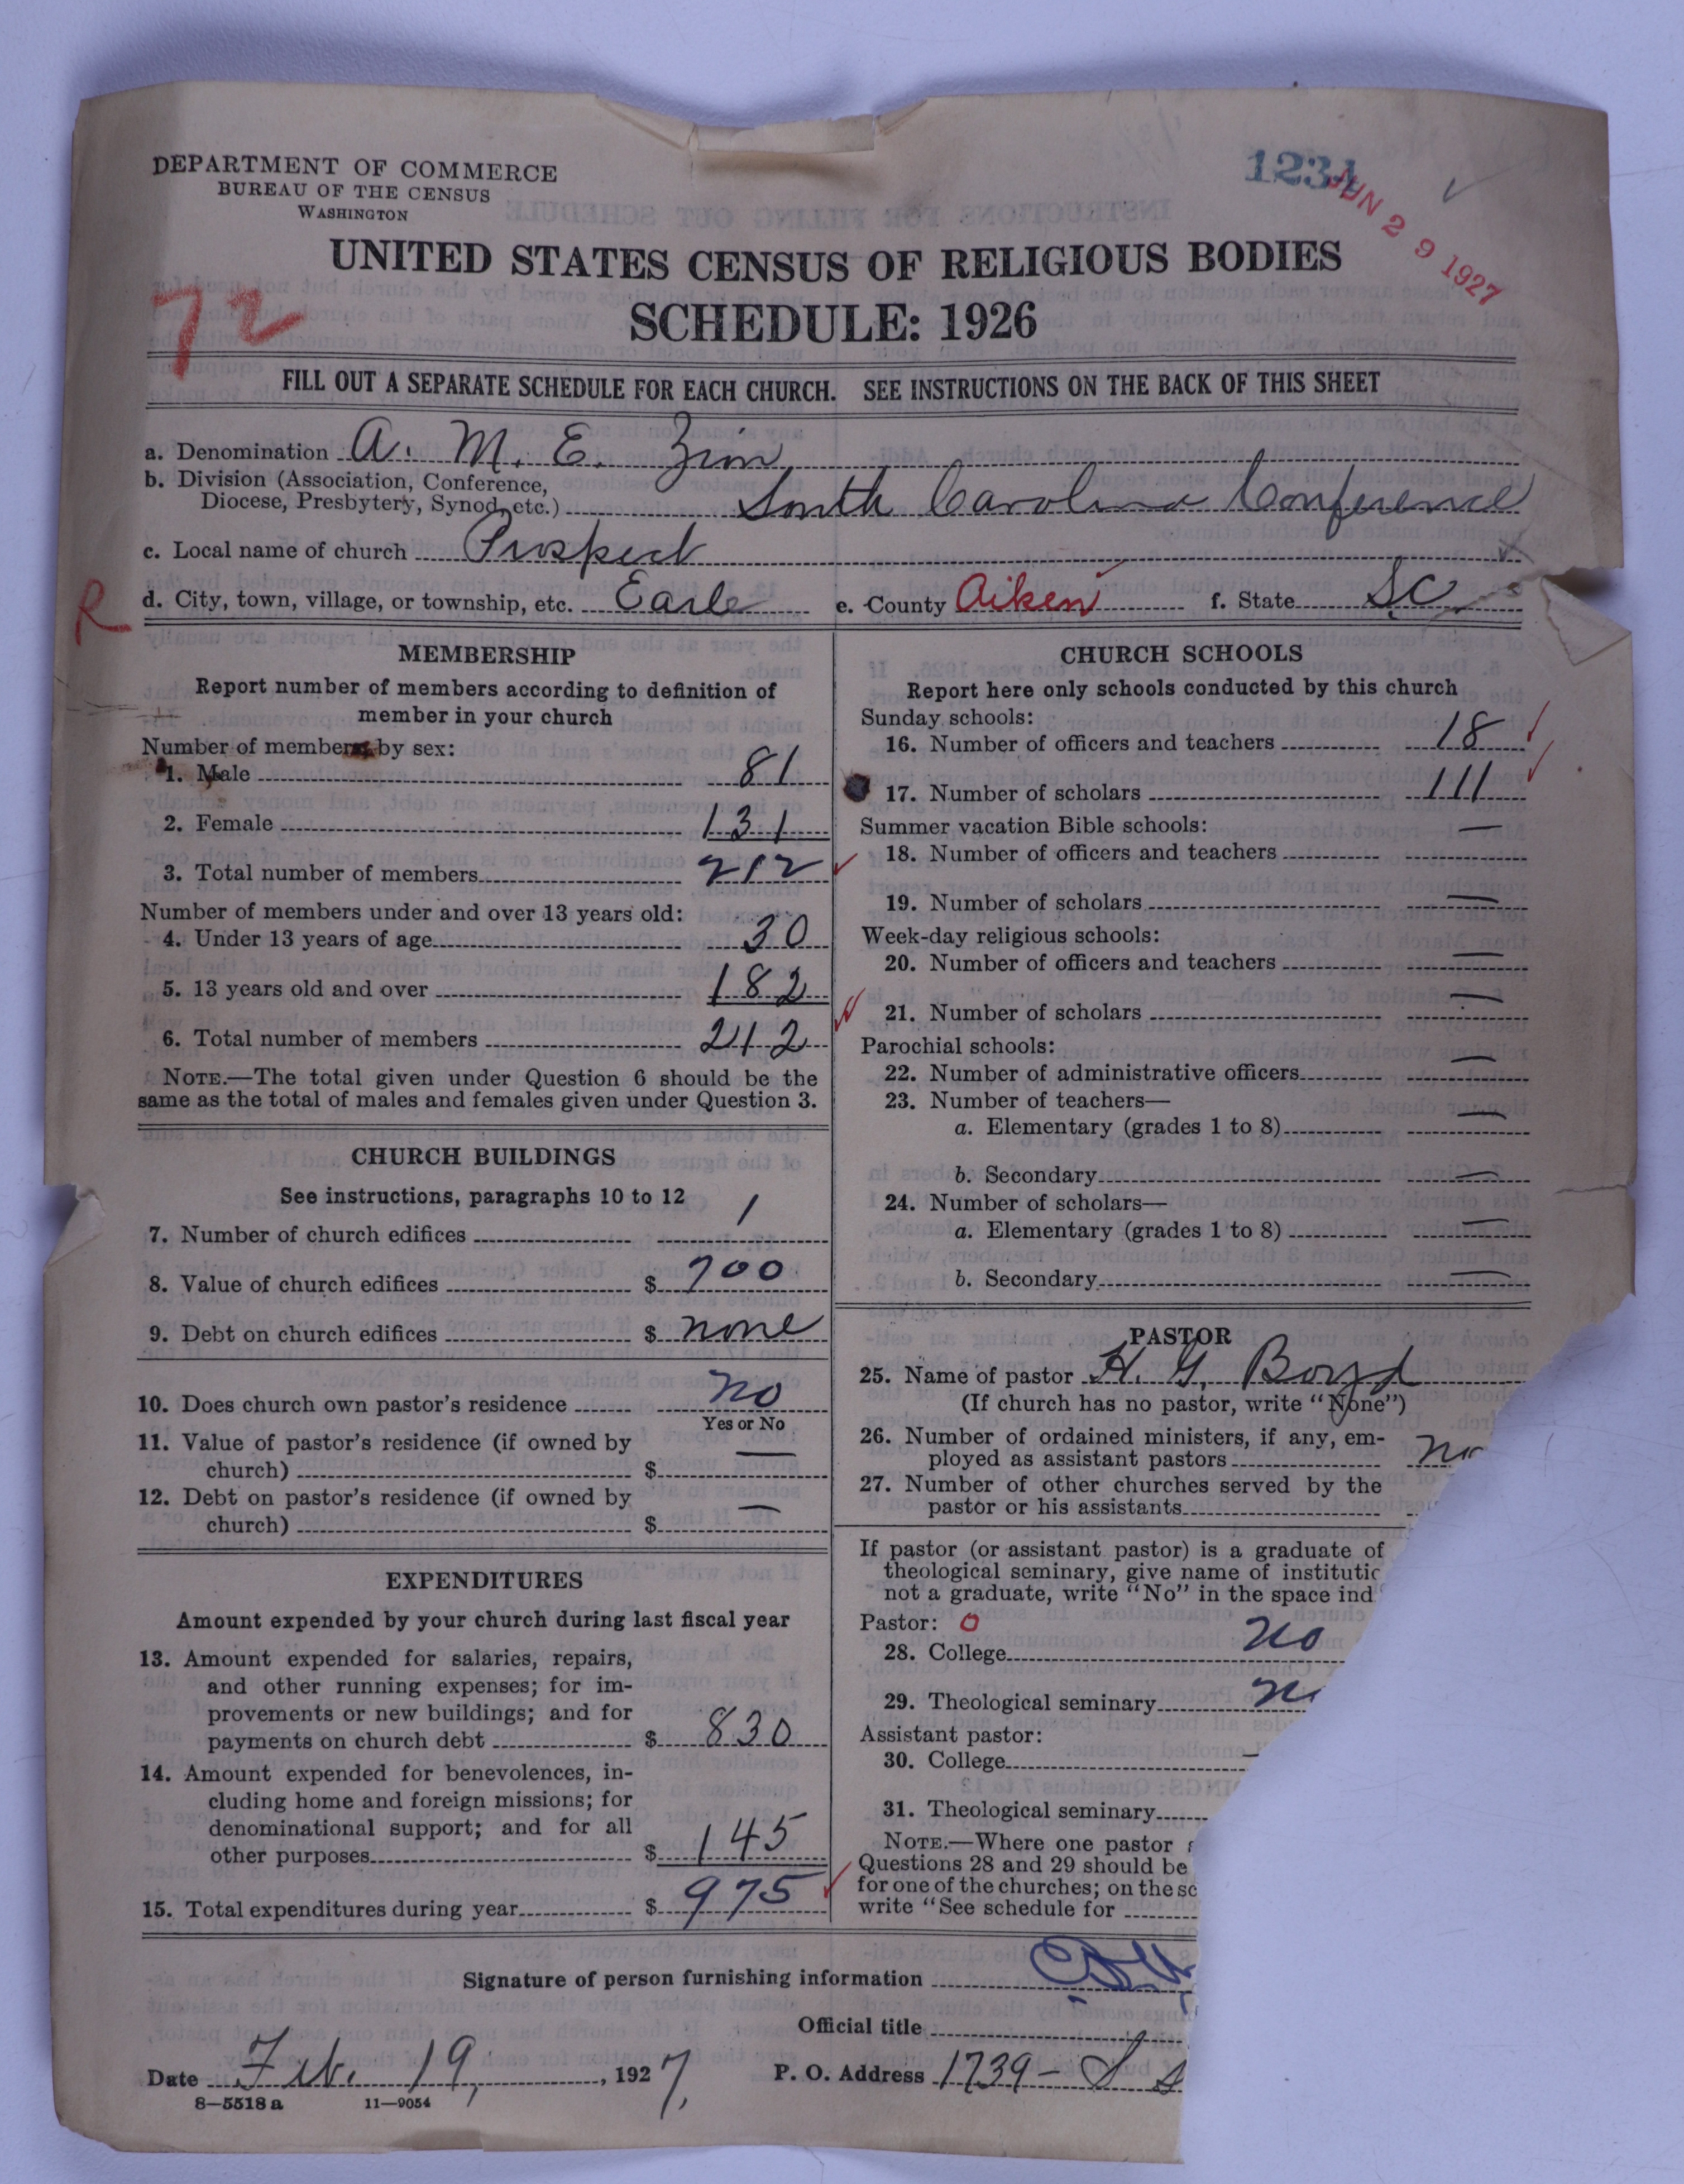 DEPARTMENT OF COMMERCE
BUREAU OF THE CENSUS
WASHINGTON
1234
JUN 29 1927
UNITED STATES CENSUS OF RELIGIOUS BODIES
SCHEDULE: 1926
72
FILL OUT A SEPARATE SCHEDULE FOR EACH CHURCH. SEE INSTRUCTIONS ON THE BACK OF THIS SHEET
a. Denomination A. M. E. Zion
b. Division (Association, Conference,
Diocese, Presbytery, Synod, etc.) South Carolina Conference
c. Local name of church Prospect
R
d. City, town, village, or township, etc. Earle e. County Aiken f. State S.C.
MEMBERSHIP
Report number of members according to definition of
member in your church
Number of members by sex:
1. Male 81
2. Female 131
3. Total number of members 212
Number of members under and over 13 years old:
4. Under 13 years of age 30
5. 13 years old and over 182
6. Total number of members 212
NOTE.—The total given under Question 6 should be the
same as the total of males and females given under Question 3.
CHURCH BUILDINGS
See instructions, paragraphs 10 to 12
7. Number of church edifices 1
8. Value of church edifices $ 700
9. Debt on church edifices $ none
10. Does church own pastor's residence no
Yes or No
11. Value of pastor's residence (if owned by
church) $ —
12. Debt on pastor's residence (if owned by
church) $ —
EXPENDITURES
Amount expended by your church during last fiscal year
13. Amount expended for salaries, repairs,
and other running expenses; for im-
provements or new buildings; and for
payments on church debt $ 830
14. Amount expended for benevolences, in-
cluding home and foreign missions; for
denominational support; and for all
other purposes $ 145
15. Total expenditures during year $ 975
CHURCH SCHOOLS
Report here only schools conducted by this church
Sunday schools:
16. Number of officers and teachers 18
17. Number of scholars 111
Summer vacation Bible schools:
18. Number of officers and teachers —
19. Number of scholars —
Week-day religious schools:
20. Number of officers and teachers —
21. Number of scholars —
Parochial schools:
22. Number of administrative officers —
23. Number of teachers—
a. Elementary (grades 1 to 8) —
b. Secondary —
24. Number of scholars—
a. Elementary (grades 1 to 8) —
b. Secondary —
PASTOR
25. Name of pastor H. G. Boyd
(If church has no pastor, write "None")
26. Number of ordained ministers, if any, em-
ployed as assistant pastors no
27. Number of other churches served by the
pastor or his assistants
If pastor (or assistant pastor) is a graduate of
theological seminary, give name of institutio
not a graduate, write "No" in the space ind
Pastor: 0
28. College no
29. Theological seminary
Assistant pastor:
30. College —
31. Theological seminary
NOTE.—Where one pastor
Questions 28 and 29 should be
for one of the churches; on the sc
write "See schedule for
Signature of person furnishing information
Official title
Date Feb. 19, 1927, P. O. Address 1739 - S
8—5518 a 11—9054